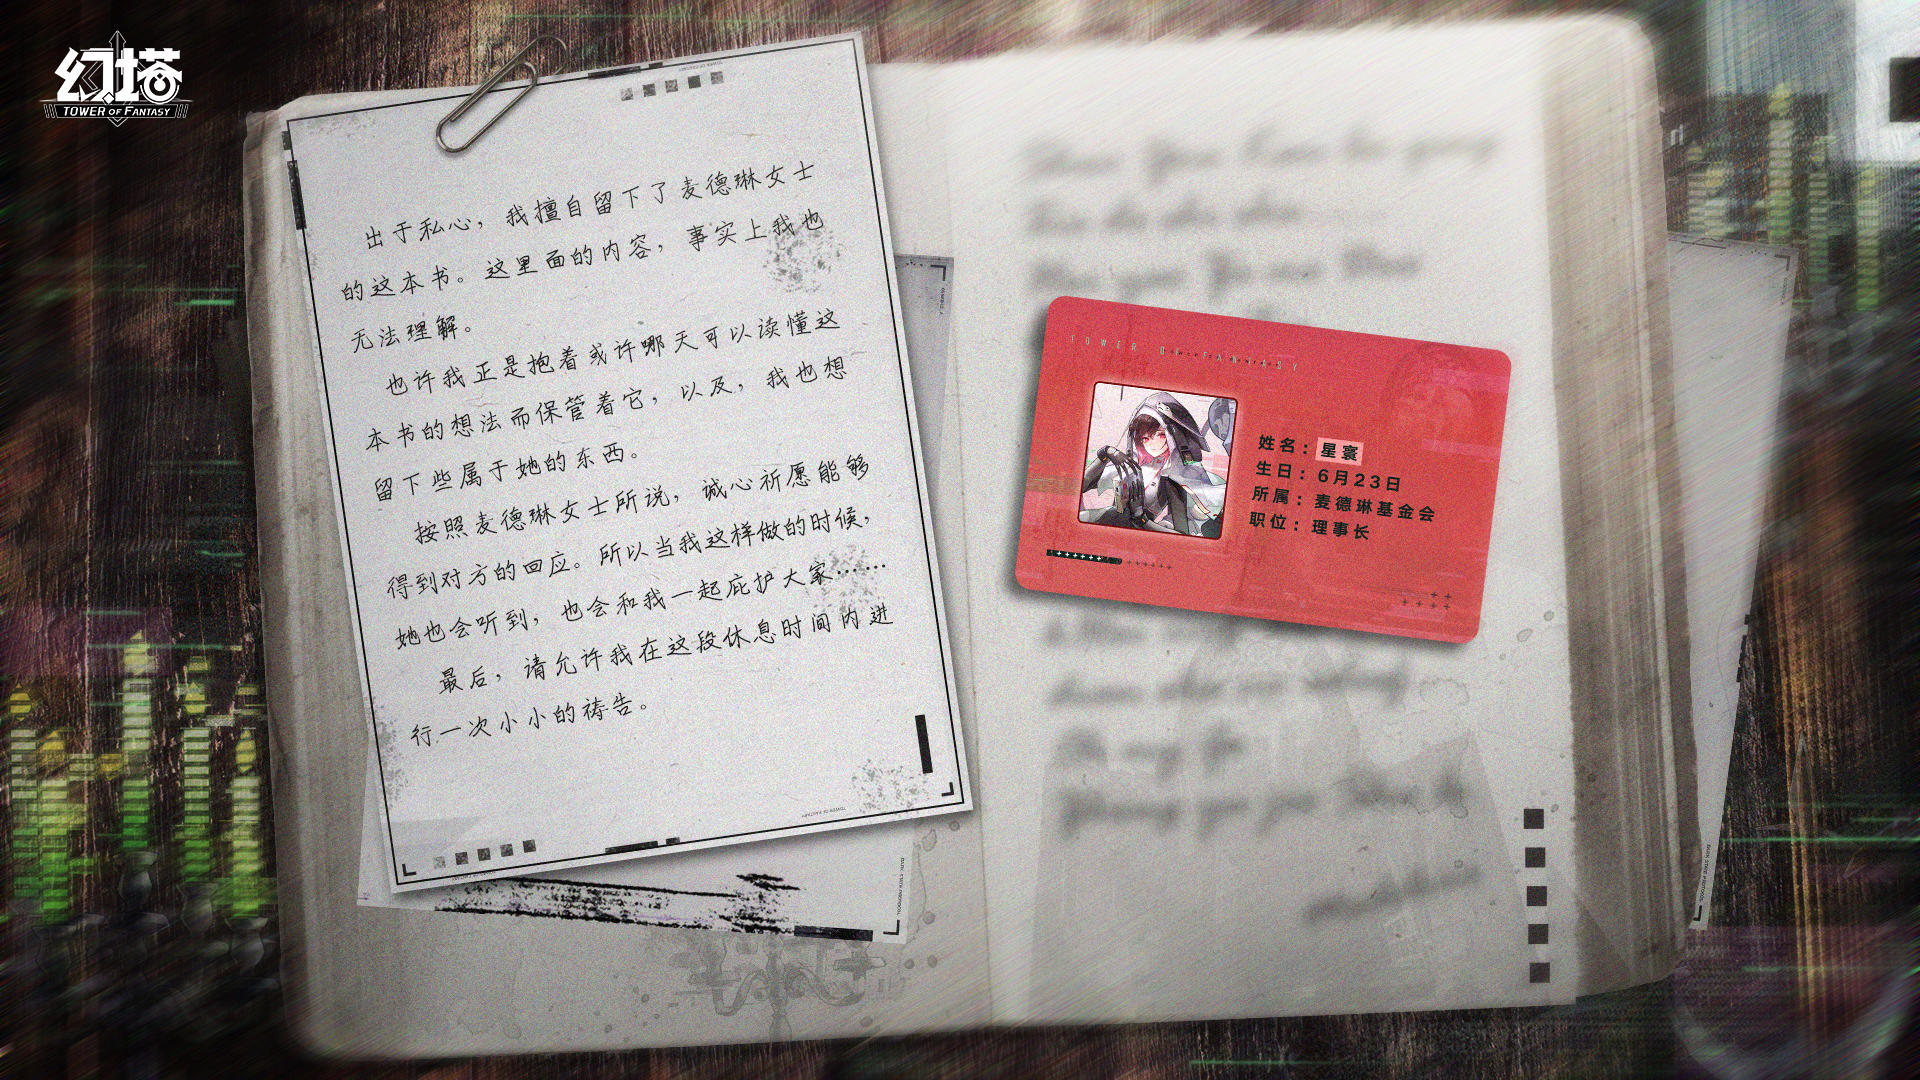 幻塔
TOWER OF FANTASY
出于私心，我擅自留下了麦德琳女士
的这本书。这里面的内容，事实上我也
无法理解。
也许我正是抱着或许哪天可以读懂这
本书的想法而保管着它，以及，我也想
留下些属于她的东西。
按照麦德琳女士所说，诚心祈愿能够
得到对方的回应。所以当我这样做的时候，
她也会听到，也会和我一起庇护大家……
最后，请允许我在这段休息时间内进
行一次小小的祷告。
TOWER OF FANTASY
姓名：星寰
生日：6月23日
所属：麦德琳基金会
职位：理事长